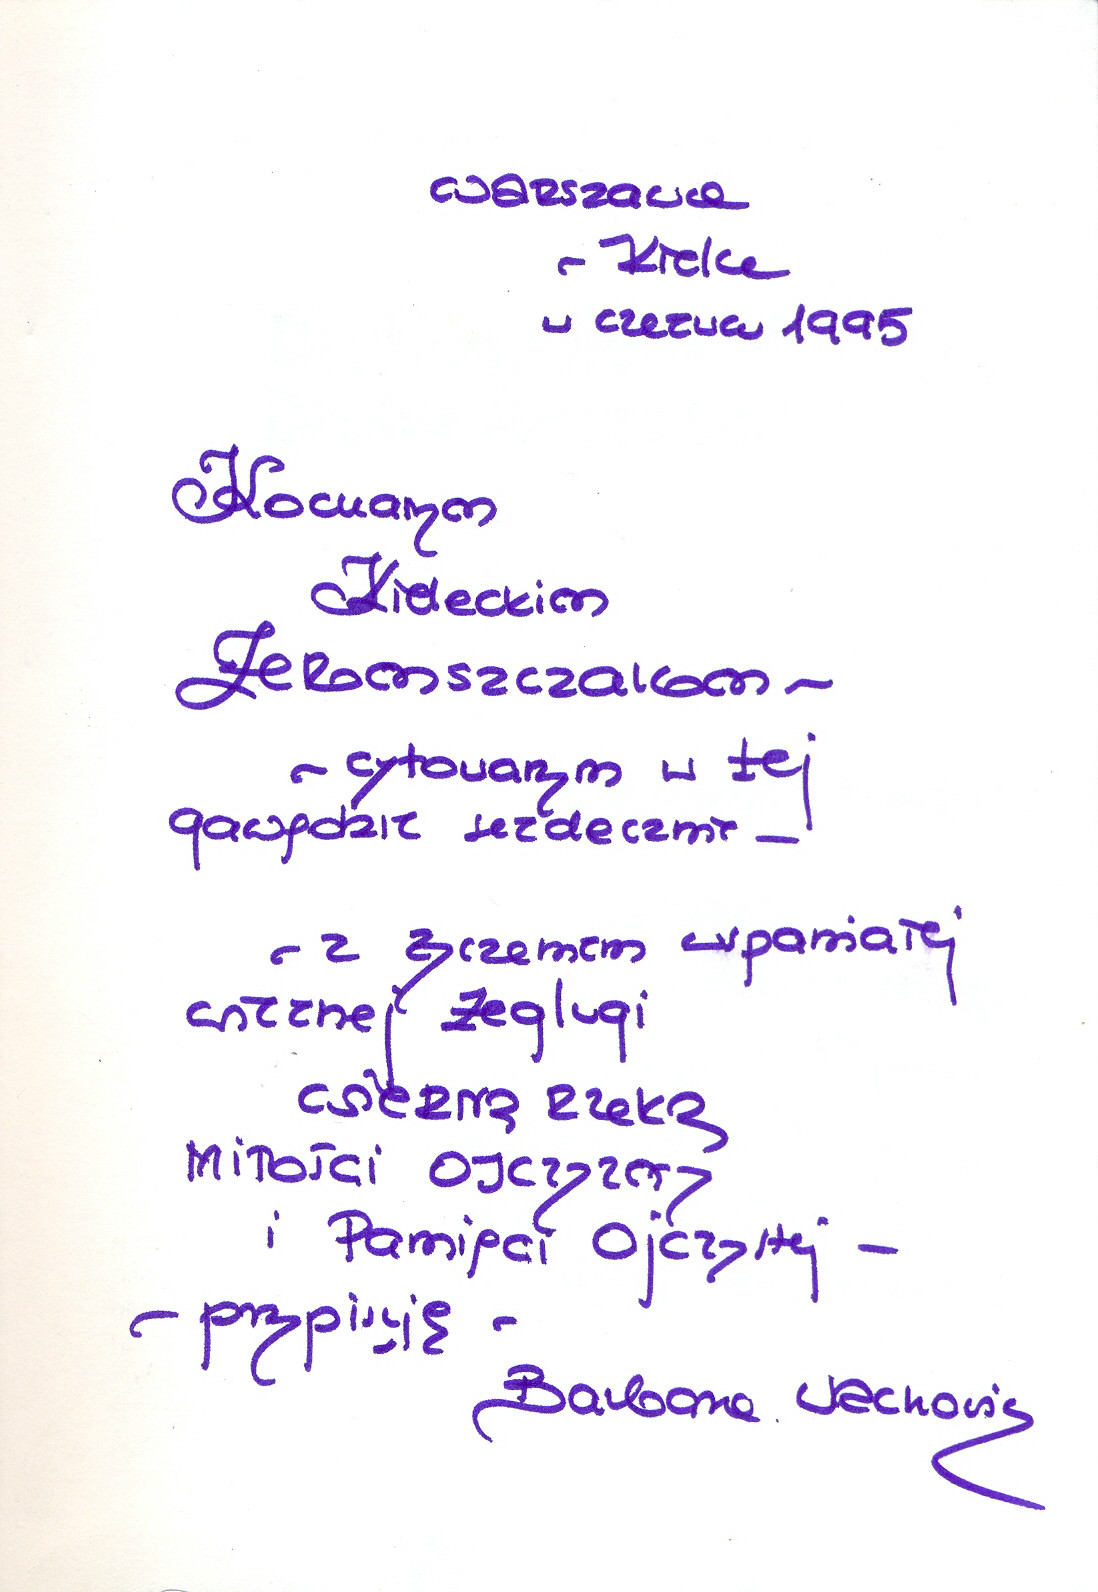 Warszawa
- Kielce
w czerwcu 1995
Kochanym
Kieleckim
Żeromszczakom -
- cytowanym w tej
gawędzie serdecznie -
- z życzeniem wspaniałej
wiernej żeglugi
wierną rzeką
Miłości Ojczyzny
i Pamięci Ojczystej -
- przypisuję -
Barbara Wachowicz